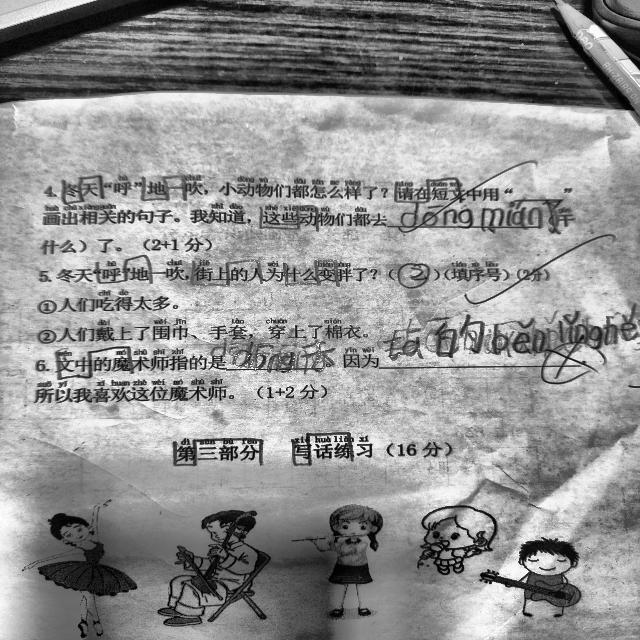 4. 冬天“呼”地一吹，小动物们都怎么样了？请在短文中用“ ”
画出相关的句子。我知道，这些动物们都去 dong mian (干
什么）了。（2+1 分）
5. 冬天“呼”地一吹，街上的人为什么变胖了？（ ② ）（填序号）（2分）
①人们吃得太多。
②人们戴上了围巾、手套，穿上了棉衣。
6. 文中的魔术师指的是 因为 ta 的 běn
所以我喜欢这位魔术师。（1+2 分）
第三部分 写话练习（16 分）